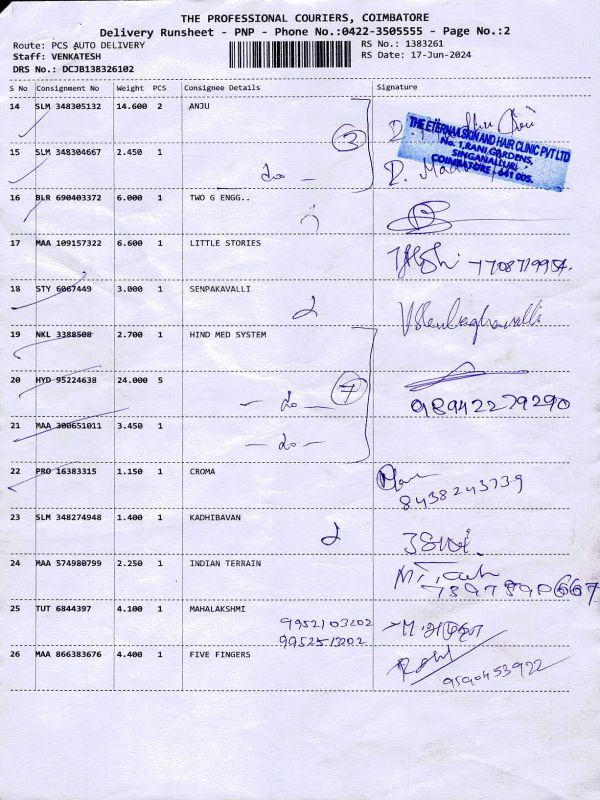 THE PROFESSIONAL COURIERS, COIMBATORE
Delivery Runsheet - PNP - Phone No.:0422-3505555 - Page No.:2
Route: PCS AUTO DELIVERY RS No.: 1383261
Staff: VENKATESH RS Date: 17-Jun-2024
DRS No.: DCJB138326102
S No Consignment No Weight PCS Consignee Details Signature
14 SLM 348305132 14.600 2 ANJU
3
THE ETERNAA SKIN AND HAIR CLINIC PVT LTD
No.1, RANI GARDENS,
SINGANALLUR,
COIMBATORE - 641 005.
15 SLM 348304667 2.450 1
- do -
16 BLR 690403372 6.000 1 TWO G ENGG..
17 MAA 109157322 6.600 1 LITTLE STORIES
18 STY 6067449 3.000 1 SENPAKAVALLI
19 NKL 3388508 2.700 1 HIND MED SYSTEM
20 HYD 95224638 24.000 5
- do - 7 98942279290
21 MAA 300651011 3.450 1
- do -
22 PRO 16383315 1.150 1 CROMA
8438243739
23 SLM 348274948 1.400 1 KADHIBAVAN
24 MAA 574980799 2.250 1 INDIAN TERRAIN
25 TUT 6844397 4.100 1 MAHALAKSHMI
9952103202
9952513202
26 MAA 866383676 4.400 1 FIVE FINGERS
9590453922